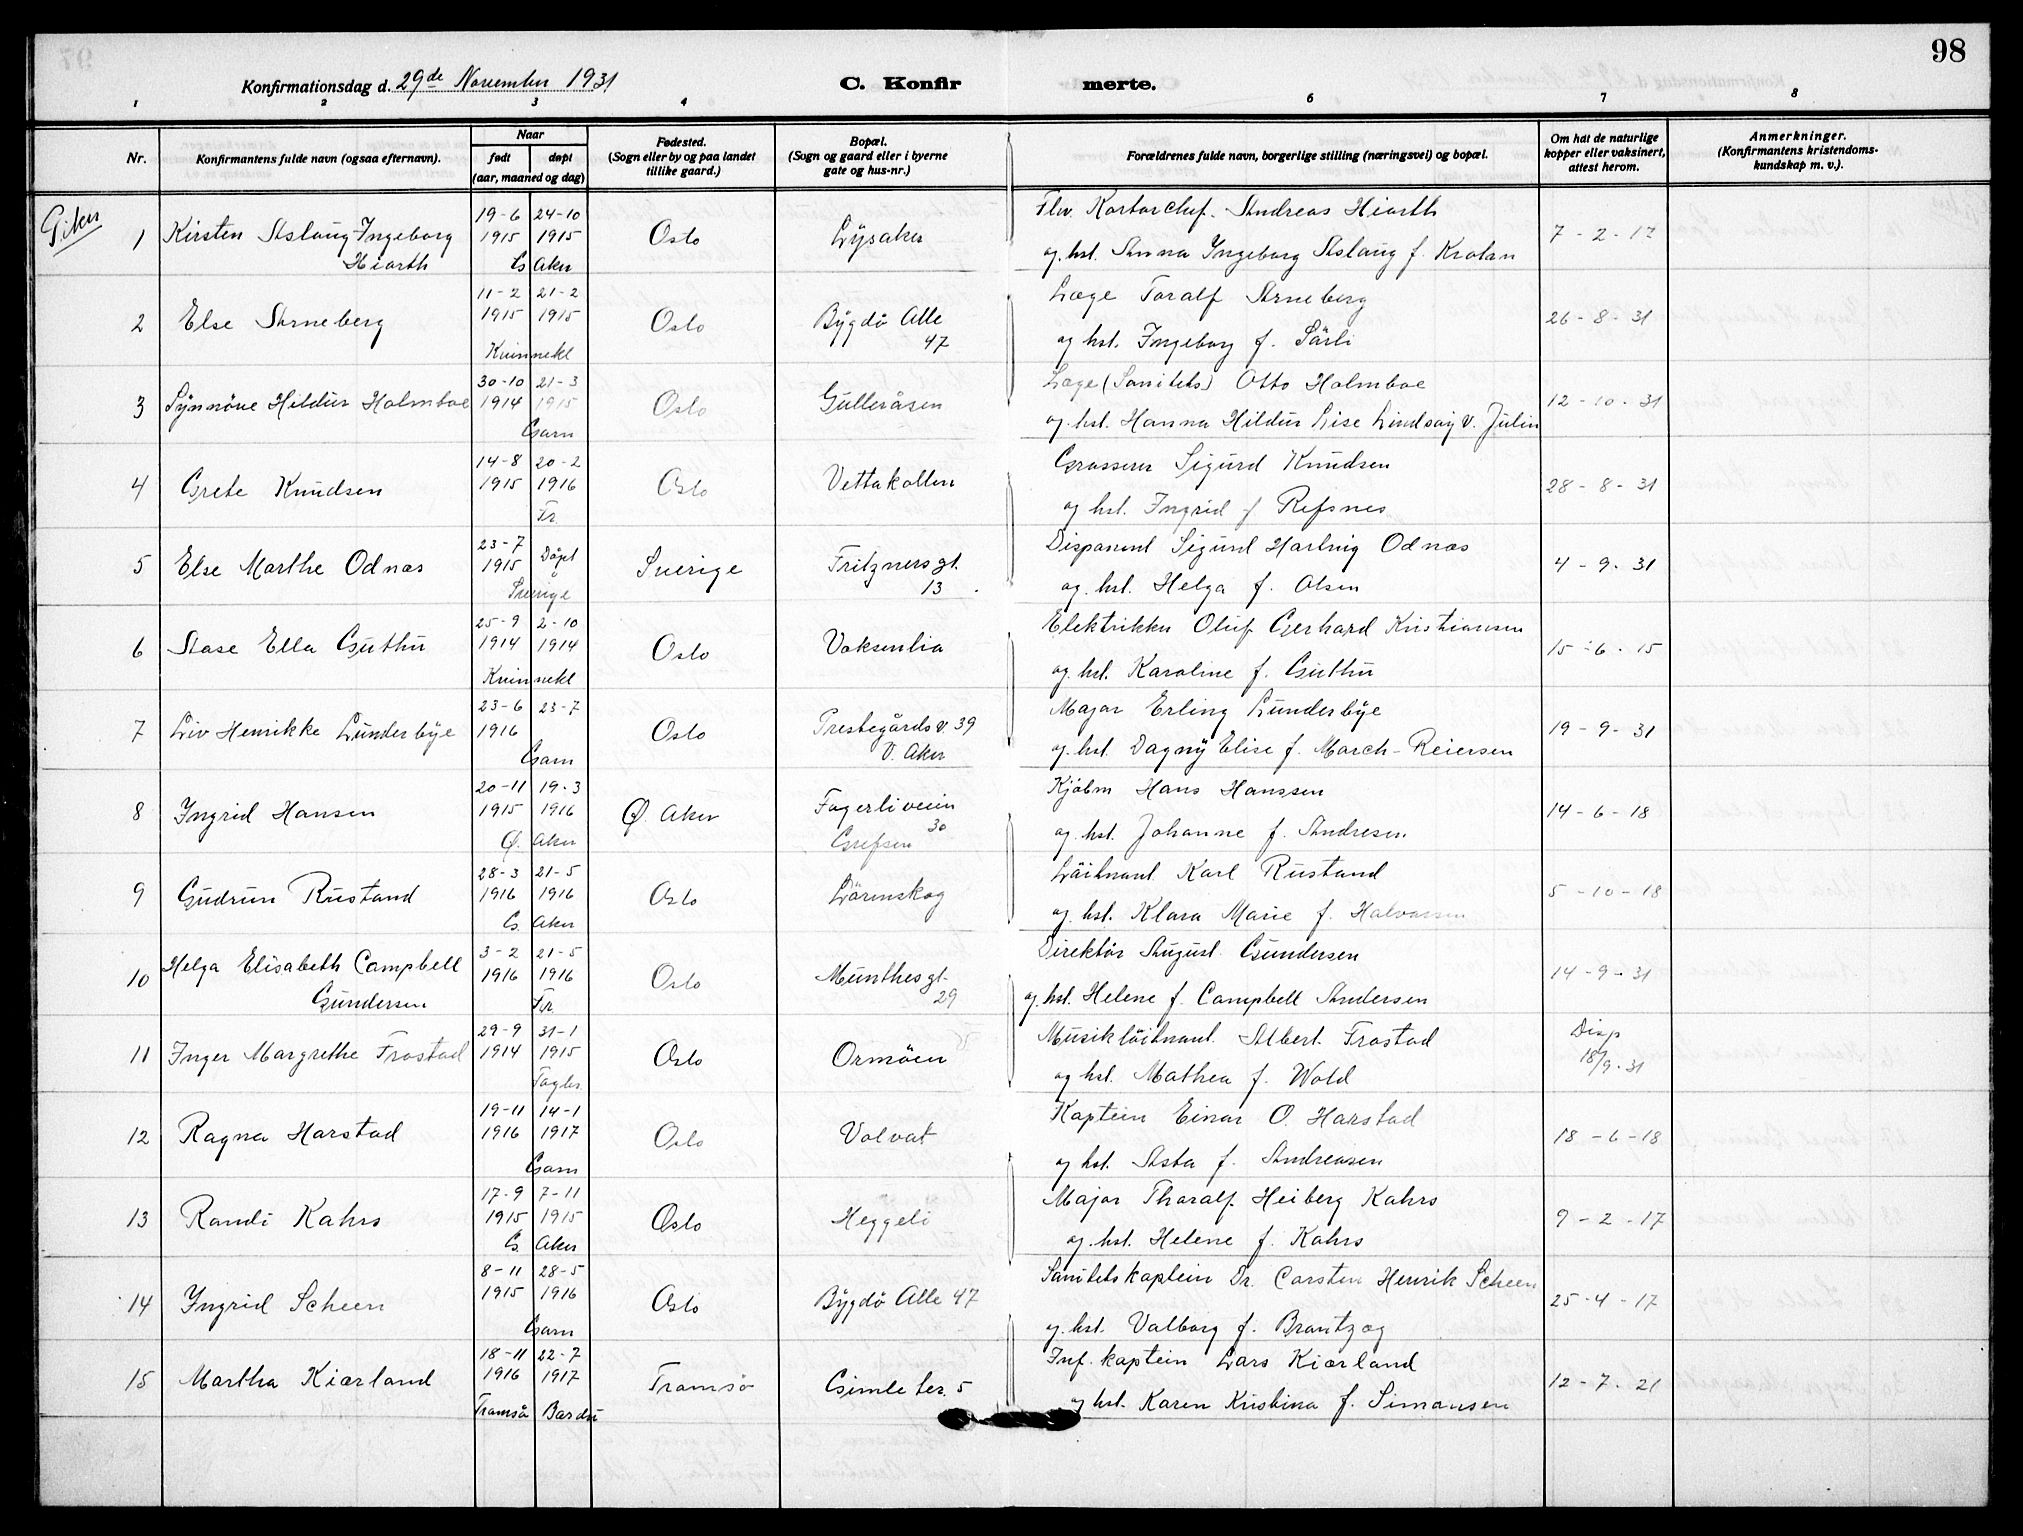 98
Konfirmationsdag d. 29de November 1931
C. Konfir merte.
1 2 3 4 6 7 8
Nr.
Konfirmantens fulde navn (ogsaa efternavn).
Naar
født døpt
(aar, maaned og dag)
Fødested.
(Sogn eller by og paa landet
tillike gaard.)
Bopæl.
(Sogn og gaard eller i byerne
gate og hus-nr.)
Forældrenes fulde navn, borgerlige stilling (næringsvei) og bopæl.
Om hat de naturlige
kopper eller vaksinert,
attest herom.
Anmerkninger.
(Konfirmantens kristendoms-
kundskap m. v.).
Piker
19-6 24-10 Andreas Hiorth
1 Kirsten Aslaug Ingeborg 1915 1915 Oslo Lysaker 7-2-17
Hiorth G Aker og hst. Anna Ingeborg Aslaug f. Krohn
11-2 21-2 Læge Toralf Arneberg
2 Else Arneberg 1915 1915 Oslo Bygdö Alle 26-8-31
Kvinnekl 47 og hst. Ingeborg f. Särli
30-10 21-3 Læge (Sanitets) Otto Holmboe
3 Synnöve Hildur Holmboe 1914 1915 Oslo Gulleråsen 12-10-31
Garn og hst. Hanna Hildur Lise Lindsay v. Julin
14-8 20-2 Grosserer Sigurd Knudsen
4 Grete Knudsen 1915 1916 Oslo Vettakollen 28-8-31
Fr. og hst. Ingrid f Refsnes
23-7 Döpt Disponent Sigurd Hartvig Odnæs
5 Else Marthe Odnæs 1915 Sverige Fritznersgt. 4-9-31
Sverige 13 og hst. Helga f. Olsen
25-9 2-10 Elektriker Oluf Gerhard Kristiansen
6 Aase Ella Guthu 1914 1914 Oslo Voksenlia 15-6-15
Kvinnekl og hst. Karoline f. Guthu
23-6 23-7 Major Erling Lundesbye
7 Liv Henrikke Lundesbye 1916 Oslo Prestegårdsv. 39 19-9-31
Gam V. Aker og hst. Dagny Elise f. March-Reiersen
20-11 19-3 Kjøbm Hans Hanssen
8 Ingrid Hansen 1915 1916 Ø. Aker Fagerliveien 14-6-18
Ø. Aker 30 Grefsen og hst. Johanne f. Andresen
28-3 21-5 Löitnant Karl Rustand
9 Gudrun Rustand 1916 1916 Oslo Lörenskog 5-10-18
G. Aker og hst. Klara Marie f. Halvorsen
3-2 21-5 Direktör August Gundersen
10 Helga Elisabeth Campbell 1916 1916 Oslo Munthesgt. 14-9-31
Gundersen Fr. 29 og hst. Helene f. Campbell Andersen
29-9 31-1 Musiklöitnant Albert Frostad Disp
11 Inger Margrethe Frostad 1914 1915 Oslo Ormöen 18/9-31
Fagbr. og hst. Mathea f. Wold
19-11 14-1 Kaptein Einar O. Harstad
12 Ragna Harstad 1916 1917 Oslo Volvat 18-6-18
Gam og hst. Asta f. Andreasen
17-9 7-11 Major Thoralf Heiberg Kahrs
13 Randi Kahrs 1915 1915 Oslo Heggeli 9-2-17
G. Aker og hst. Helene f. Kahrs
8-11 28-5 Sanitetskaptein Dr. Carsten Henrik Scheen
14 Ingrid Scheen 1915 1916 Oslo Bygdö Alle 47 25-4-17
Garn og hst. Valborg f. Brantzæg
18-11 22-7 Inf. kaptein Lars Kiærland
15 Martha Kiærland 1916 1917 Tromsö Gimle ter. 5 12-7-21
Tromsö Bardu og hst. Karen Kristina f. Simonsen